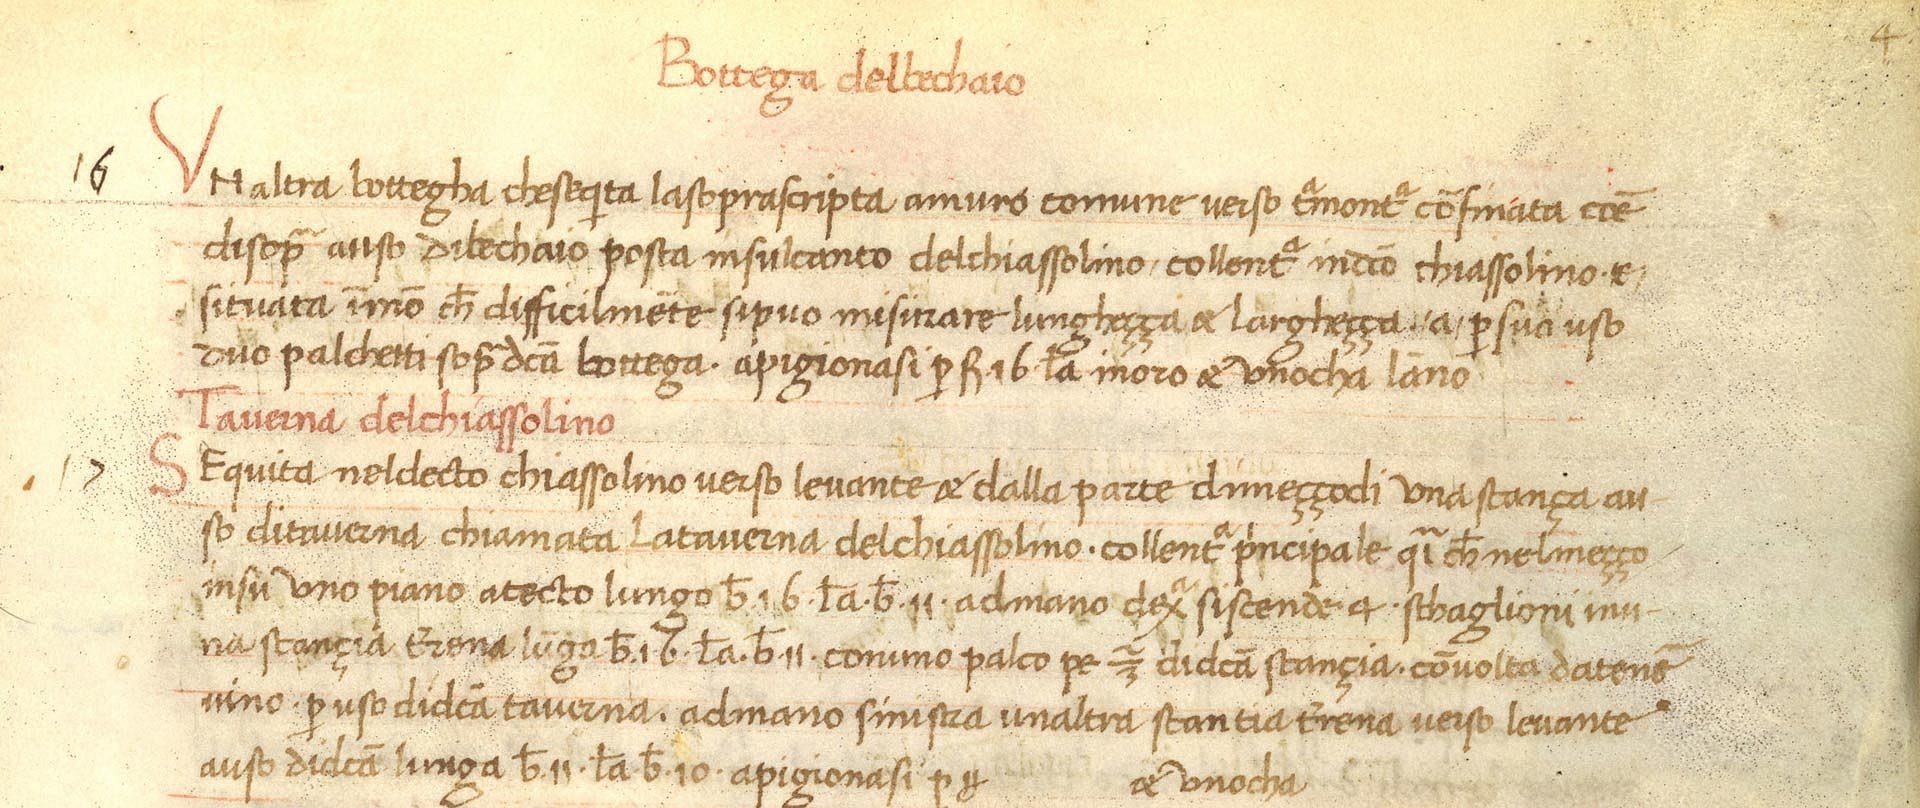 4
Bottega delbechaio
16 VN altra bottegha cheseqita lasoprascripta amuro comune verso t̃mont̃ cõfinata coe͂
disop̃ auso dibechaio posta insulcanto delchiassolino, collent̃ indco̅ chiassolino. &
situata i̅mo̅ ch̅ difficilmẽte sipuo misurare lungheçça & largheçça. a p̱ suo uso
duo palchetti sop̃ dca̅ bottega. apigionasi p̱ f. 16 l̅a inoro & vnocha lãno
Taverna delchiassolino
17 SEquita neldecto chiassolino verso levante & dalla parte dimeççodi vna stança au-
so ditaverna chiamata Lataverna delchiassolino. collent̃ p̃ncipale qi̅ ch̅ nelmeçço
insu̅ vno piano atecto lungo b̅. 16. l̅a. b̅. 11. admano dex̃ siscende. 4. schaglioni inu-
na stançia t̃rena lu̅ga b̅. 16. l̅a. b̅. 11. conuno palco pe didca̅ stançia. co̅volta datene͂
vino. p̱ uso didca̅ taverna. admano sinistra unaltra stantia t̃rena verso levante
auso didca̅ lunga b̅. 11. l̅a. b̅. 10. apigionasi p & vnocha